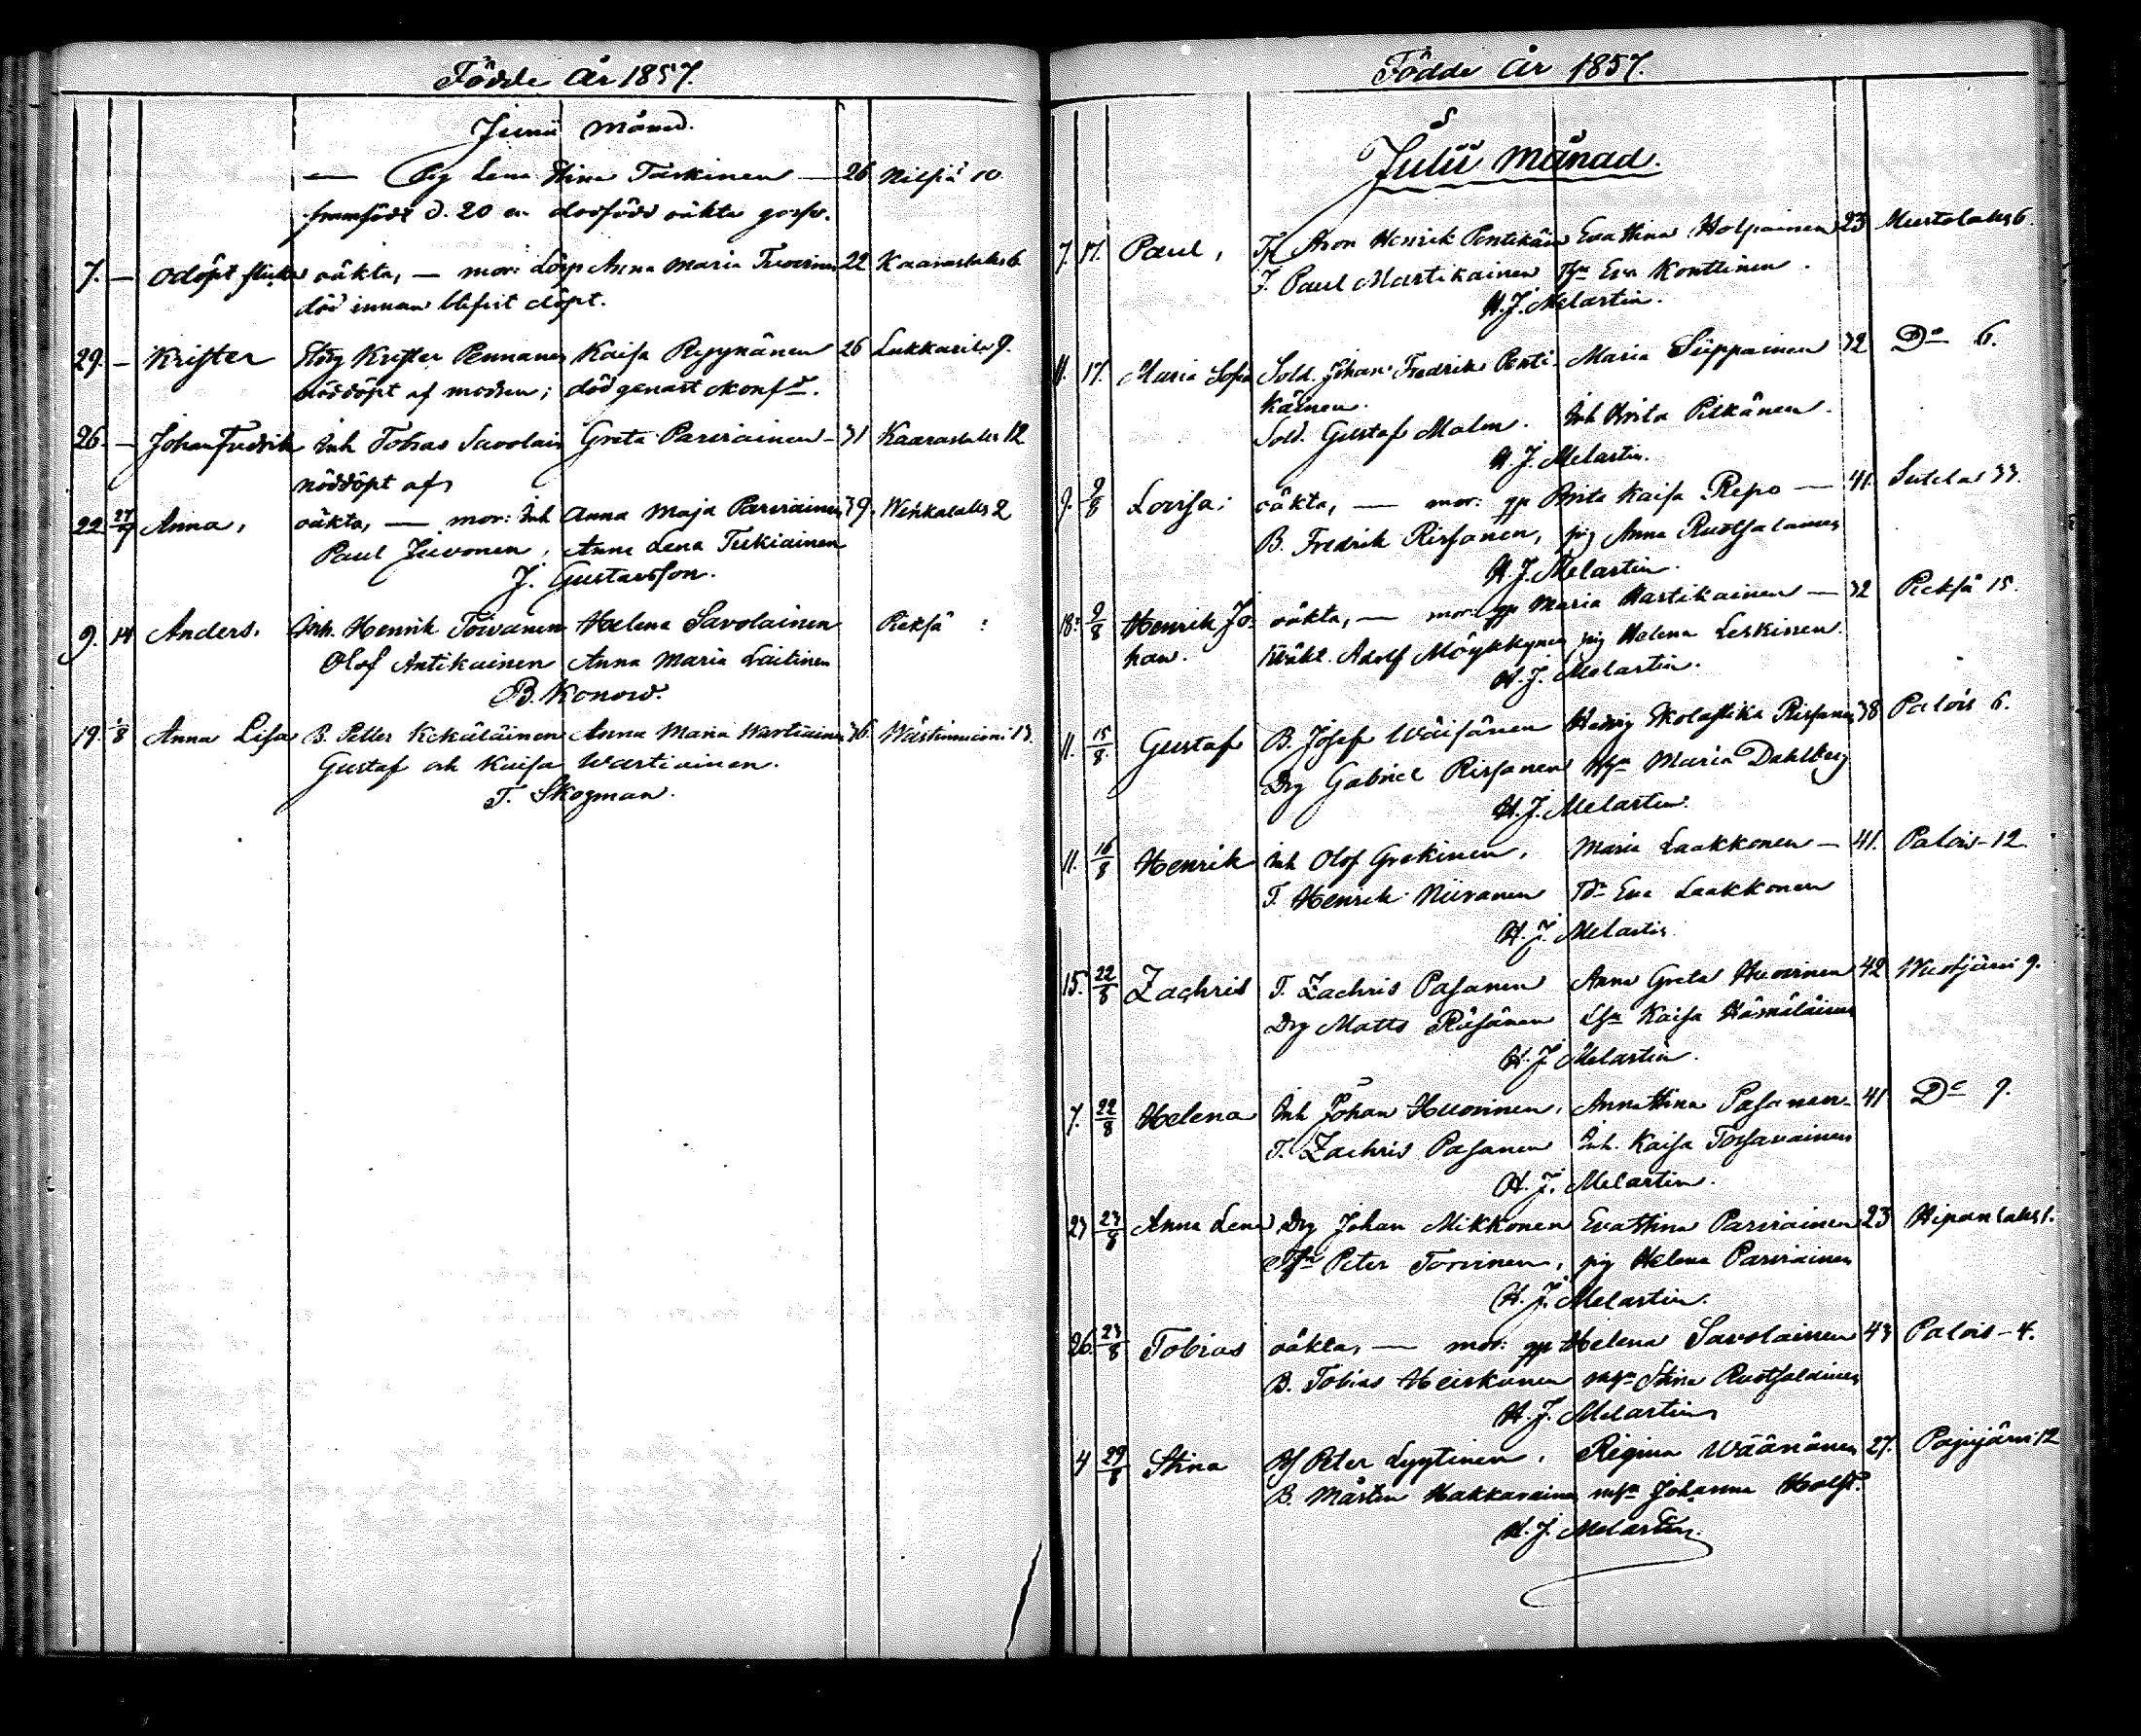 Födde år 1857.
Junii månad.
— Pig Lena Stina Taskinen — 26 Nilsiä 10
framfödt d. 20 en dödfödd oäkta gosse.
7. — Odöpt flicka oäkta, — mor: Lösp Anna Maria Tuovinen 22 Kaaraslaks 6
död innan blifvit döpt.
29. — Krister Krister Pennanen Kaisa Ryynänen 26 Lukkarila 9.
nöddöpt af modren; död genast
26. — Johan Fredrik Inh Tobias Savolain Greta Parviainen — 31 Kaaraslaks 12
nöddöpt af
22. 27/7 Anna, oäkta, — mor: Inh Anna Maja Parviainen 39. Wehkalaks 2
Paul Juvonen, Anna Lena Tukiainen
J. Gustavsson.
9. 14 Anders. Inh. Henrik Toivanen Helena Savolainen Pieksä :
Olof Antikainen Anna Maria Laitinen
B. Konow.
19. 1/8 Anna Lisa B. Petter Kekäläinen Anna Maria Wartiainen 36 Wästinniemi 13.
Gustaf och Kaisa Wartiainen.
T. Skogman.
Födde år 1857.
Julii månad.
7. 17. Paul, Aron Henrik Pentikäin Eva Stina Holpainen 23 Mustolaks 6.
T. Paul Martikainen Eva Konttinen.
H. J. Melartin.
11. 17. Maria Sofia Sold. Johan Fredrik Penti- Maria Siippainen 32 Do 6.
käinen.
Sold. Gustaf Malm. Inh Brita Pitkänen.
H. J. Melartin.
9. 9/8 Lovisa: oäkta, — mor: gp Brita Kaisa Repo — 41. Sutela 33.
B. Fredrik Rissanen, pig Anna Ruotsalainen
H. J. Melartin.
18. 9/8 Henrik Jo- oäkta, — mor: gp Maria Hartikainen — 32 Pieksä 15.
han. Adolf Möykkynen pig Helena Leskinen.
H. J. Melartin.
11. 15/8. Gustaf B. Josef Wäisänen Hedvig Skolastika Rissanen 38 Palois 6.
Drg Gabriel Rissanen Maria Dahlberg
H. J. Melartin.
11. 16/8 Henrik Inh Olof Grekinen, Maria Laakkonen — 41. Palois - 12.
T. Henrik Niiranen Eva Laakkonen
H. J. Melartin
15. 22/8 Zachris T. Zachris Pasanen Anna Greta Huovinen 42 Wuotjärvi 9.
Drg Matts Räsänen Kaisa Hämäläinen
H. J. Melartin.
7. 22/8 Helena Inh Johan Huovinen, Anna Stina Pasanen 41 Do 9.
T. Zachris Pasanen Inh. Kaisa Tossavainen
H. J. Melartin.
23 23/8 Anna Lena Drg Johan Mikkonen Eva Stina Parviainen 23 Hipanlaks 1.
Peter Torvinen, pig Helena Parviainen
H. J. Melartin.
26. 23/8 Tobias oäkta, — mor: gp Helena Savolainen 43 Palois - 4.
B. Tobias Heiskanen Stina Ruotsalainen
H. J. Melartin
4 29/8 Stina Peter Lyytinen, Regina Wäänänen 27. Pajujärvi 12
B. Mårten Hakkarainen Johanna Holst.
H. J. Melartin.